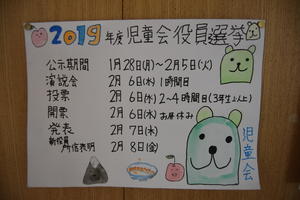 2019年度児童会役員選挙
公示期間 1月28日(月)~2月5日(火)
演説会 2月6日(水)1時間目
投票 2月6日(水)2~4時間目(3年生以上)
開票 2月6日(水)お昼休み
発表 2月7日(木)
新役員所信表明 2月8日(金)
児童会